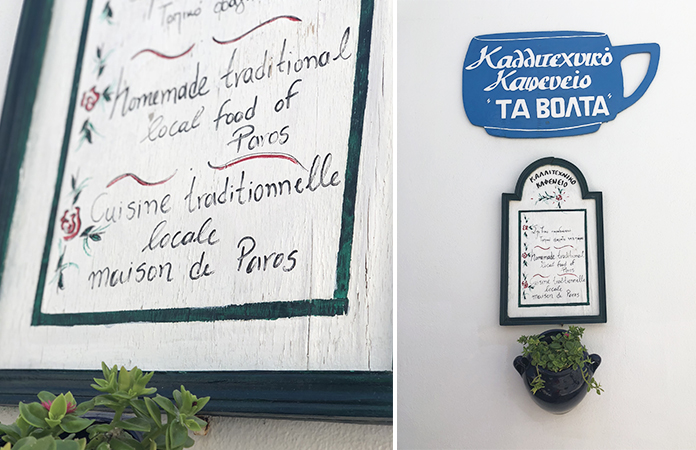 Τοπικό
Homemade traditional
local food of
Paros
Cuisine traditionnelle
locale
maison de Paros
Καλλιτεχνικό
Καφενείο
"ΤΑ ΒΟΛΤΑ"
ΚΑΛΛΙΤΕΧΝΙΚΟ
ΚΑΦΕΝΕΙΟ
Homemade traditional
local food of
Paros
Cuisine traditionnelle
locale
maison de Paros